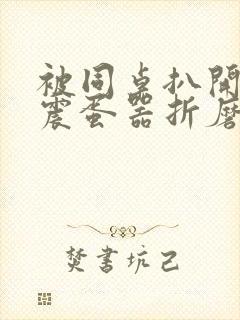 被同桌扒開
震蛋器折磨
焚書坑己